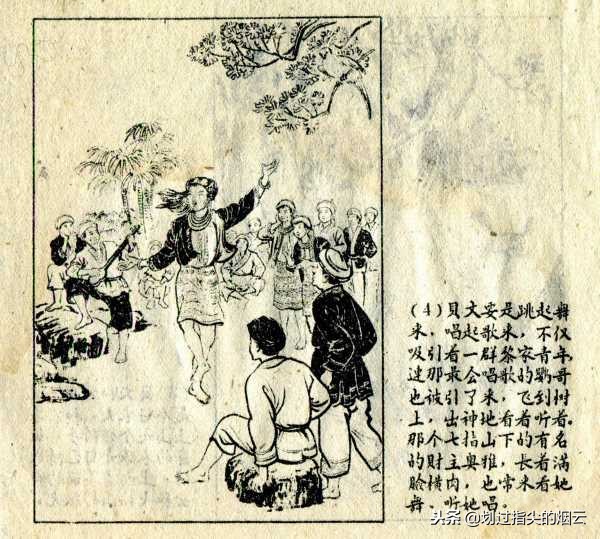 (4)贝大要是跳起舞
来，唱起歌来，不仅
吸引着一群黎家青年，
连那最会唱歌的鹦哥
也被引了来，飞到树
上，出神地看着听着。
那个七指山下的有名
的财主奥雅，长着满
脸横肉，也常来看她
舞、听她唱。
头条 @划过指尖的烟云